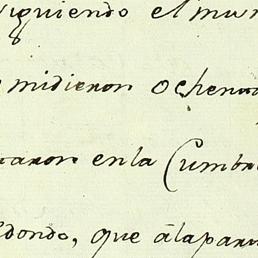 siguiendo el mun
midieron ochenta
caron en la Cumbre
dondo, que á la parte